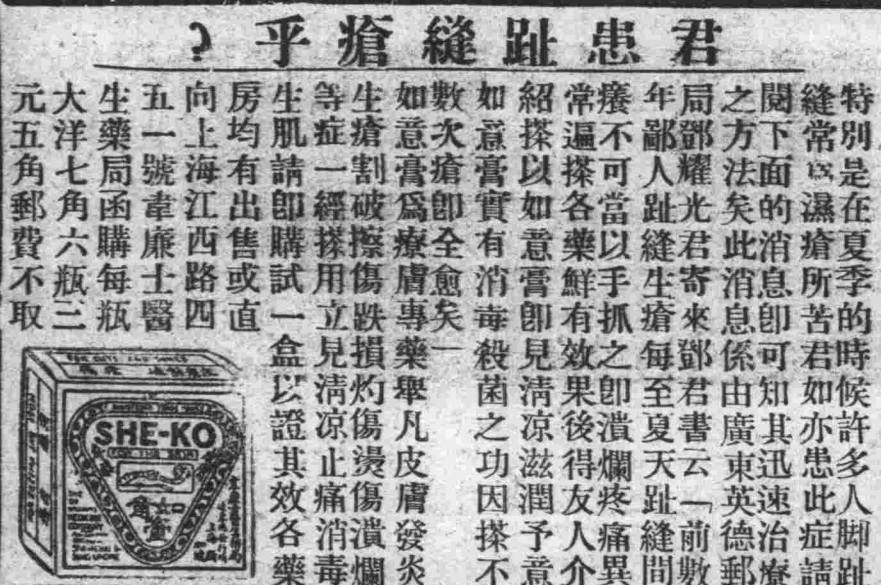 君患趾縫瘡乎?
特別是在夏季的時候許多人脚趾
縫常為濕瘡所苦君如亦患此症請
閱下面的消息卽可知其迅速治療
之方法矣此消息係由廣東英德郵
局鄧耀光君寄來鄧君書云「前數
年鄙人趾縫生瘡每至夏天趾縫間
癢不可當以手抓之卽潰爛疼痛異
常遍搽各藥鮮有效果後得友人介
紹搽以如意膏卽見淸凉滋潤予意
如意膏實有消毒殺菌之功因搽不
數次瘡卽全愈矣」
如意膏爲療膚專藥舉凡皮膚發炎
生瘡割破擦傷跌損灼傷燙傷潰爛
等症一經搽用立見淸凉止痛消毒
生肌請卽購試一盒以證其效各藥
房均有出售或直
向上海江西路四
五一號韋廉士醫
生藥局函購每瓶
大洋七角六瓶三
元五角郵費不取
SHE-KO
FOR THE SKIN
如意膏